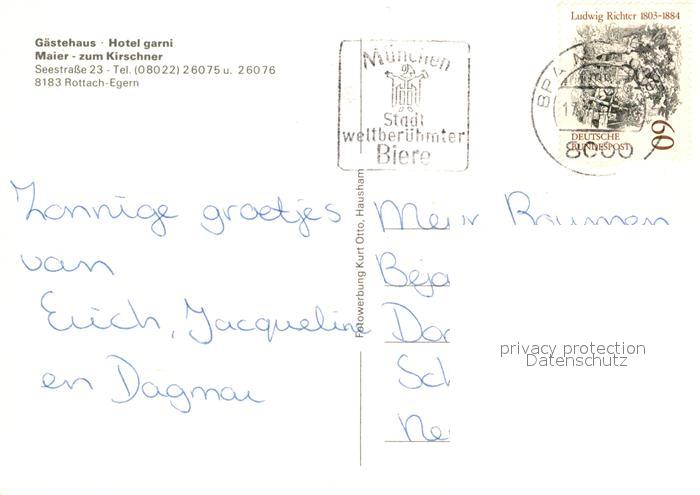 Gästehaus · Hotel garni
Maier - zum Kirschner
Seestraße 23 - Tel. (08022) 26075 u. 26076
8183 Rottach-Egern
München
Stadt
weltberühmter
Biere
Ludwig Richter 1803-1884
DEUTSCHE
BUNDESPOST
60
8000
Fotowerbung Kurt Otto, Hausham
Zonnige groetjes
van
Erich, Jacqueline
en Dagmar
privacy protection
Datenschutz